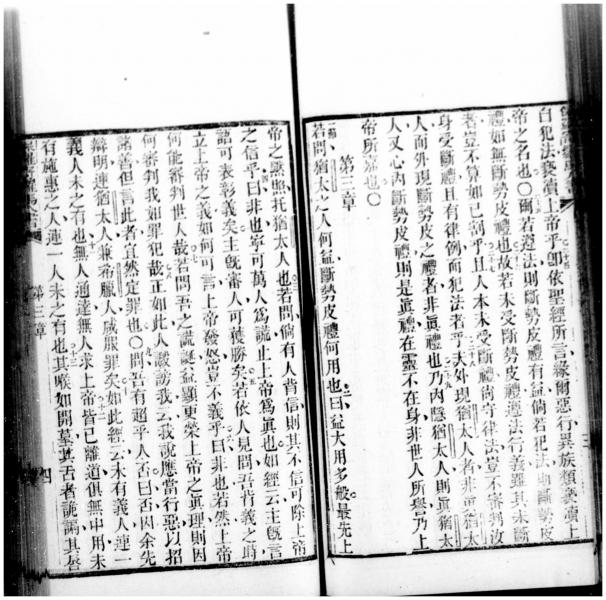 白犯法褻瀆上帝乎卽依聖經所言緣爾惡行異族類褻瀆上
帝之名也○爾若遵法則斷勢皮禮有益倘若犯法則斷勢皮
禮如無斷勢皮禮也故若未受斷勢皮禮遵法行義雖其未斷
者豈不算如已割乎且人本未受斷禮尚守律法豈不審判汝
身受斷禮且有律例而犯法者乎夫外現猶太人者非爲猶太
人而外現斷勢皮之禮者非眞禮也乃內隱猶太人則眞猶太
人又心內斷勢皮禮則是眞禮在靈不在身非世人所譽乃上
帝所嘉也○
第三章
若問猶太之人何益斷勢皮禮何用也曰益大用多般最先上
帝之默照托猶太人也若問倘有人背信則其不信可除上帝
之信乎曰非也寧可萬人爲謊止上帝爲眞也如經云主旣言
語可表彰義矣主旣審人可獲勝矣若依人見問吾背義之時
立上帝之義如何可言上帝發怒豈不義乎曰非也若然上帝
何能審判世人哉若問吾之謊誕益顯更榮上帝之眞理則因
何審判我如罪犯哉正如此人毀謗我云我說應當行惡以招
諸善但言此者宜然定罪也○問吾有超乎人否曰否因余先
辯明連猶太人兼希臘人咸服罪矣如此經云未有義人連一
義人未之有也無人通達無人求上帝皆已離道俱無中用未
有施惠之人連一人未之有也其喉如開墓其舌者詭譎其唇
第三章
四